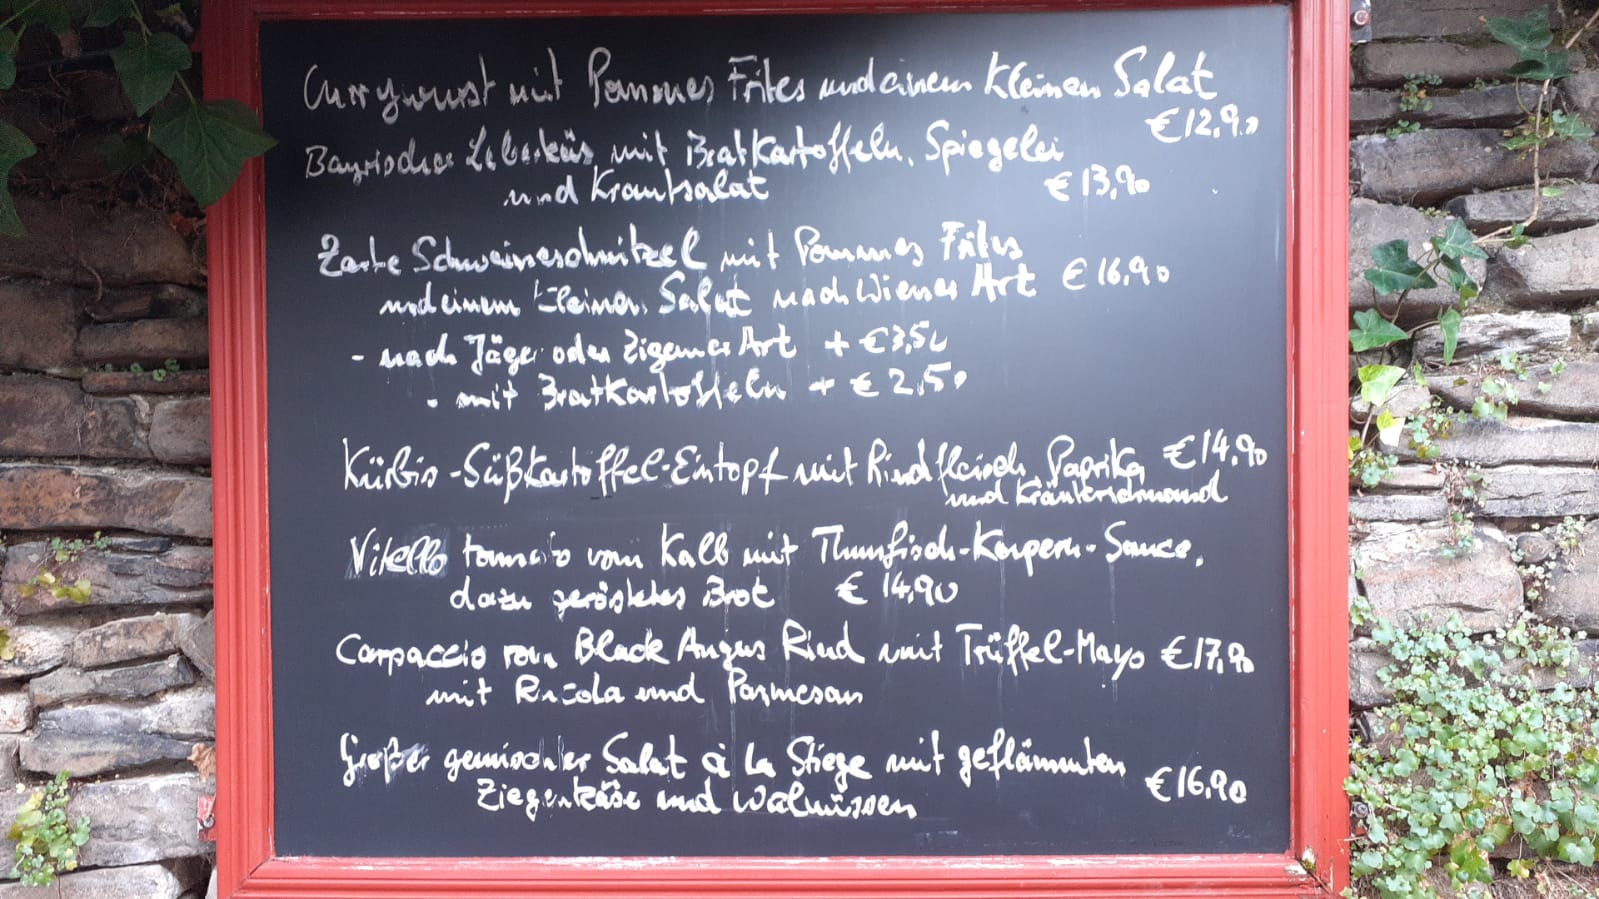 Currywurst mit Pommes Frites und einem kleinen Salat
€12,90
Bayrischer Leberkäs mit Bratkartoffeln, Spiegelei
und Krautsalat €13,90
Zarte Schweineschnitzel mit Pommes Frites
und einem kleinen Salat nach Wiener Art €16,90
- nach Jäger oder Zigeuner Art + €3,50
- mit Bratkartoffeln + €2,50
Kürbis-Süßkartoffel-Eintopf mit Rindfleisch, Paprika €14,90
und Kräuterschmand
Vitello tomato vom Kalb mit Thunfisch-Kapern-Sauce,
dazu geröstetes Brot €14,90
Carpaccio vom Black Angus Rind mit Trüffel-Mayo €17,90
mit Rucola und Parmesan
Großer gemischter Salat à la Stiege mit geflämmten
Ziegenkäse und Walnüssen €16,90